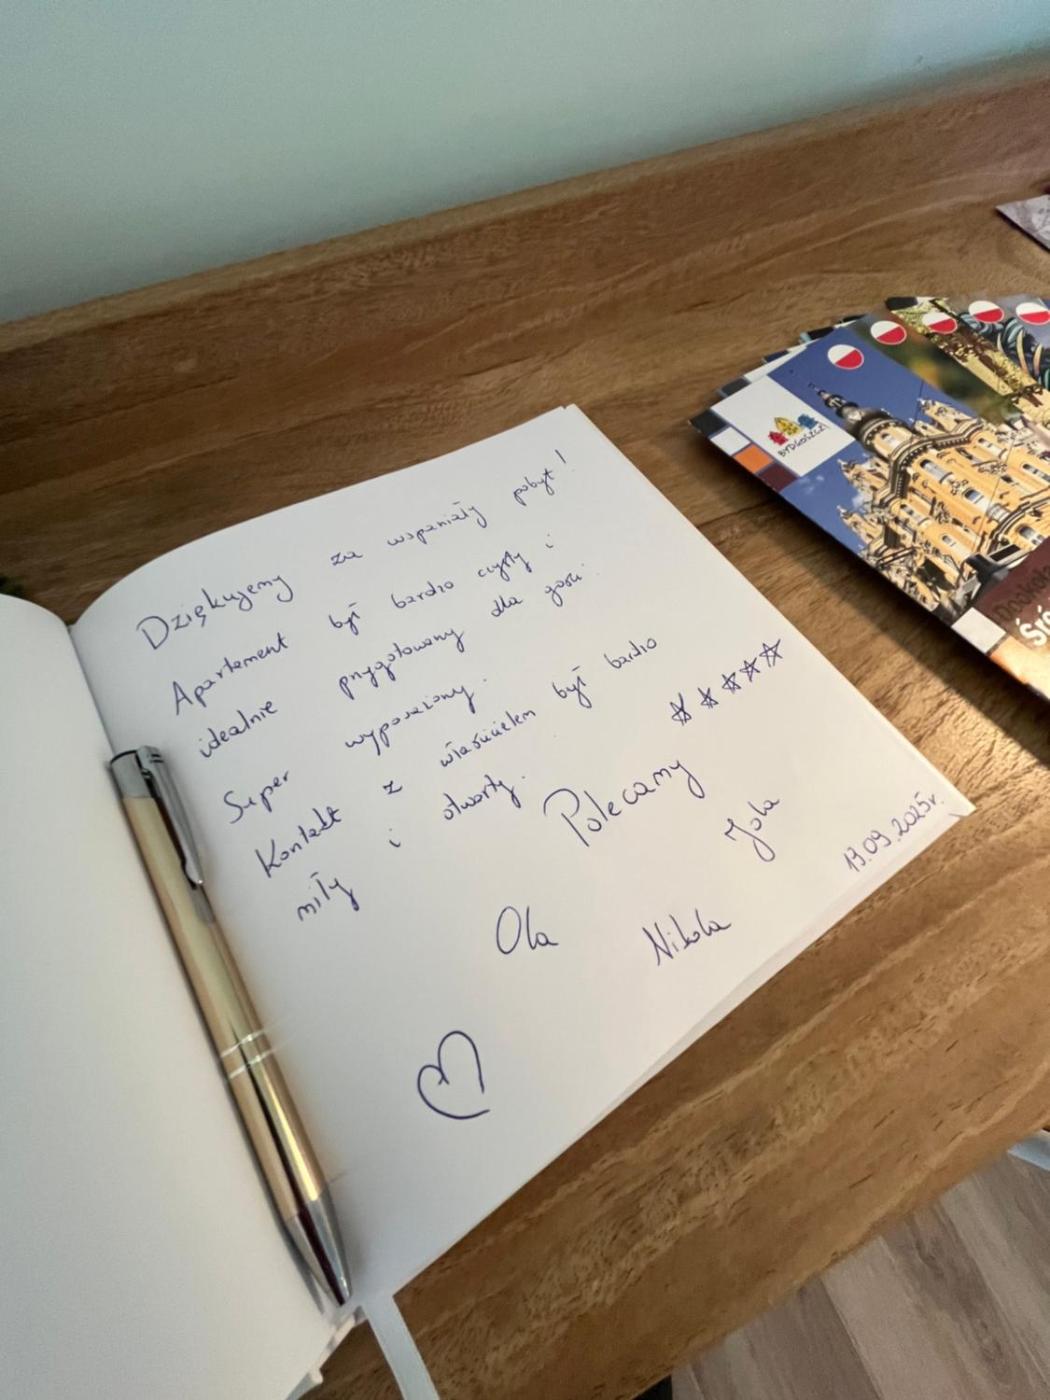 Dziękujemy za wspaniały pobyt!
Apartament był bardzo czysty i
idealnie przygotowany dla gości.
Super wyposażony.
Kontakt z właścicielem był bardzo
miły i otwarty.
Polecamy
Jola
Ola
Nikola
13.09.2025r.
BYDGOSZCZ